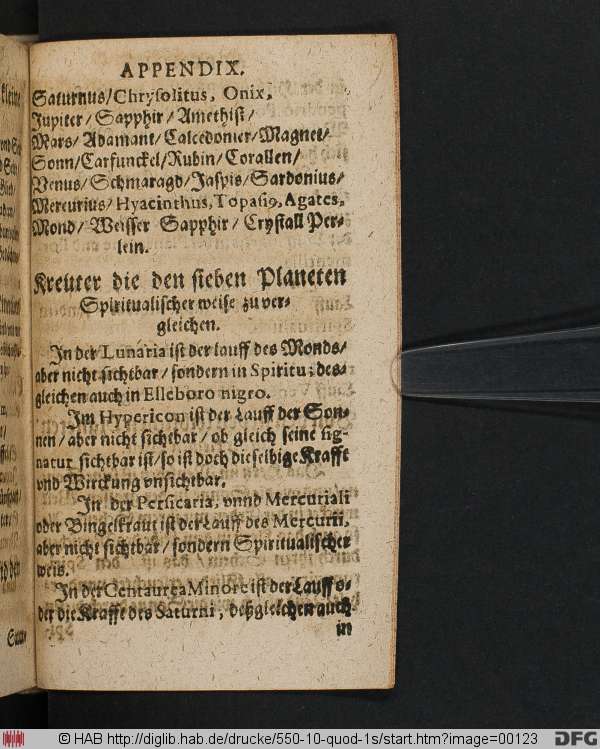 APPENDIX.
Saturnus/Chrysolitus, Onix,
Jupiter/Sapphir/Amethist/
Mars/Adamant/Calcedonier/Magnet/
Sonn/Carfunckel/Rubin/Corallen/
Venus/Schmaragd/Jaspis/Sardonius/
Mercurius/Hyacinthus, Topasiꝰ, Agates,
Mond/Weisser Sapphir/Crystall Per-
lein.
Kreuter die den sieben Planeten
Spiritualischer weise zu ver-
gleichen.
In der Lunaria ist der lauff des Monds/
aber nicht sichtbar/sondern in Spiritu; des-
gleichen auch in Elleboro nigro.
Im Hypericon ist der Lauff der Son-
nen/aber nicht sichtbar/ob gleich seine sig-
natur sichtbar ist/so ist doch dieselbige Krafft
vnd Wirckung vnsichtbar.
In der Persicaria, vnnd Mercuriali
oder Bingelkraut ist der Lauff des Mercurii,
aber nicht sichtbar/sondern Spiritualischer
weis.
In der Centaurea Minore ist der Lauff o-
der die Krafft des Saturni, deßgleichen auch
in
kleine
© HAB http://diglib.hab.de/drucke/550-10-quod-1s/start.htm?image=00123
DFG